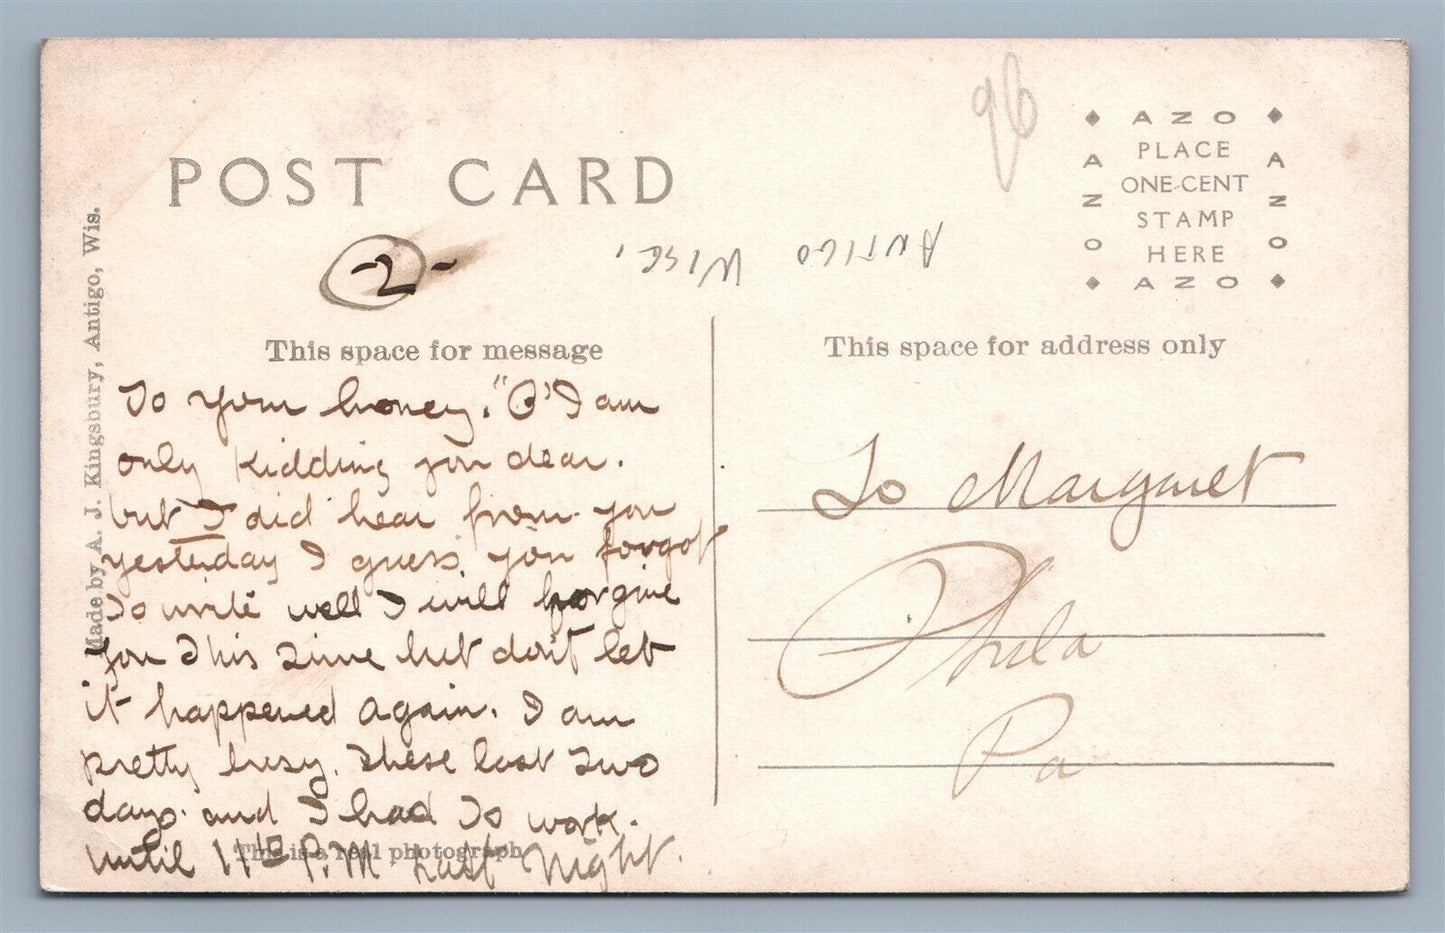 96
POST CARD
A Z O
PLACE
ONE-CENT
STAMP
HERE
A Z O
A Z O
A Z O
-2-
ANTIGO WISC,
Made by A. J. Kingsbury, Antigo, Wis.
This space for message
To your honey. "O" I am
only kidding you dear.
but I did hear from you
yesterday I guess you forgot
to write well I will forgive
you this time but don't let
it happened again. I am
pretty busy. these last two
days. and I had to work.
until 11 P.M. Last Night.
This is a real photograph
This space for address only
To Margaret
Phila
Pa